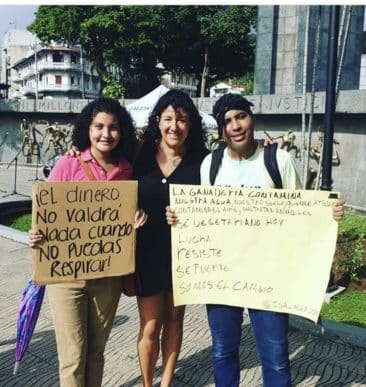 N MILLONE
JUSTIC
¡el dinero
No valdrá
Nada cuando
No Puedas
Respirar!
LA GANADERIA CONTAMINA
NUESTRA AGUA, NUESTRO SUELO,
CONTAMINA EL AIRE, MALTRATAN ANIMALES
SÉ VEGETARIANO HOY
LUCHA
RESISTE
SE FUERTE
SOMOS EL CAMBIO